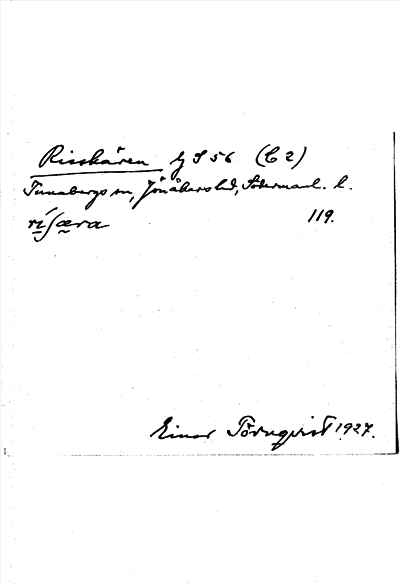 Risskären G S 56 (C 2)
Tunabergs sn, Jönåkers hd, Södermanl. l.
rís̱ʃæra 119.
Einar Törnqvist 1927.